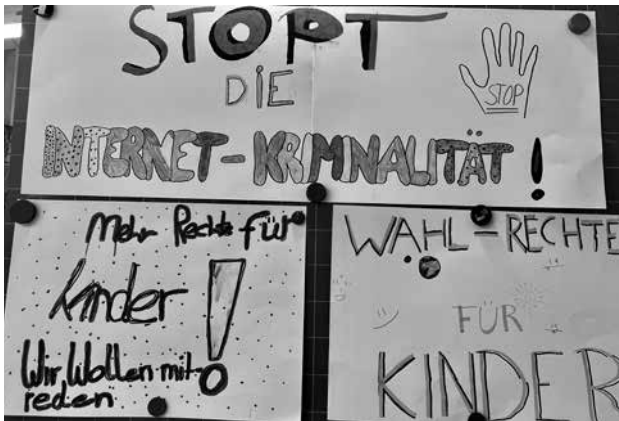 STOPT
DIE
STOP
INTERNET-KRIMINALITÄT!
Mehr Rechte für
Kinder!
Wir Wollen mit-
reden
WAHL-RECHTE
FÜR
KINDER